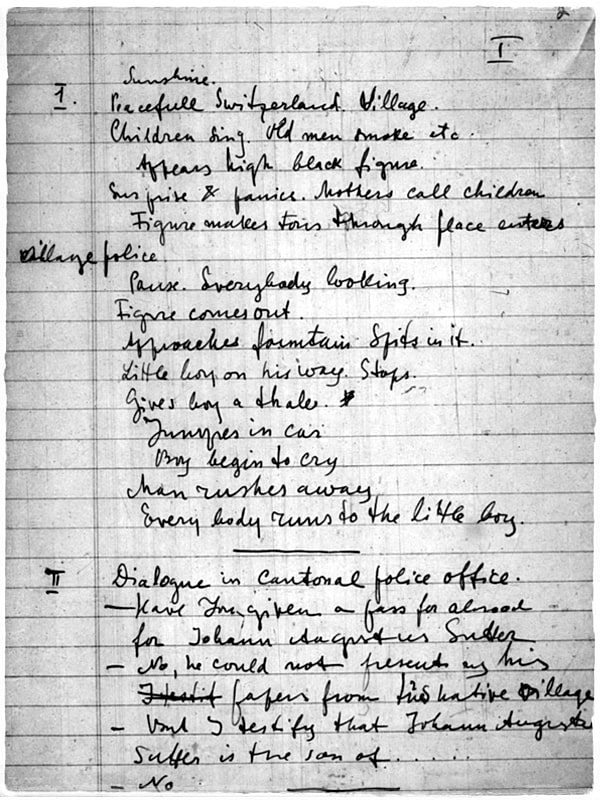 2
I
Sunshine.
1. Peacefull Switzerland. Village.
Children sing. Old men smoke etc.
Appears high black figure.
Surprise & panice. Mothers call children
Figure makes through place enteres
village police
Pause. Everybody looking.
Figure comes out.
Approaches fountain Spits in it.
Little boy on his way. Stops.
Gives boy a thaler.
Jumpes in car
Boy begin to cry
Man rushes away
Every body runs to the little boy.
II Dialogue in Cantonal police office.
— Have You given a pass for abroad
for Johann Augustus Sutter
— No, he could not present us his
papers from his native village
— I testify that Johann August
Sutter is the son of . . . . . .
— No